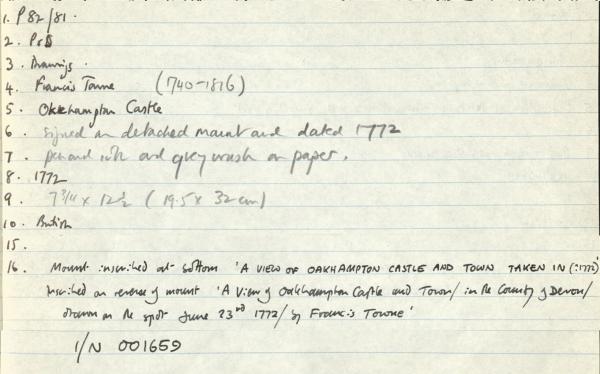 1. P82/81.
2. P&S
3. Drawings.
4. Francis Towne (1740-1816)
5. Okehampton Castle
6. signed on detached mount and dated 1772
7. pen and ink and grey wash on paper.
8. 1772
9. 7 3/4 x 12 1/2 (19.5 x 32 cm)
10. British
15.
16. Mount inscribed at bottom 'A VIEW OF OAKHAMPTON CASTLE AND TOWN TAKEN IN (:1772)
Inscribed on reverse of mount 'A View of Oakhampton Castle and Town/ in the County of Devon/
drawn on the spot June 23rd 1772/ by Francis Towne'
I/N 001659